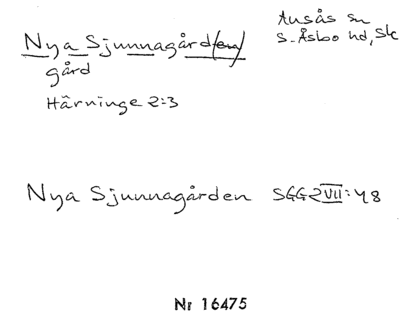 Nya Sjunnagård(en)
gård
Härninge 2:3
Ausås sn
S. Åsbo hd, Sk
Nya Sjunnagården SGG2VII:48
Nr 16475